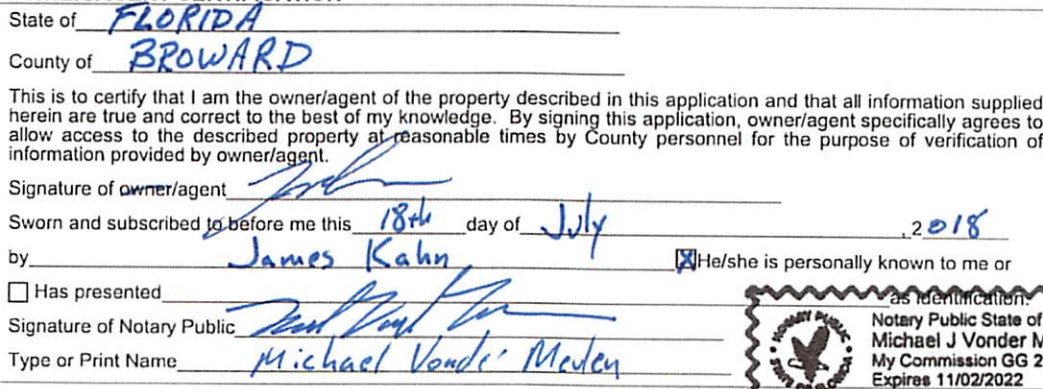 State of FLORIDA
County of BROWARD
This is to certify that I am the owner/agent of the property described in this application and that all information supplied
herein are true and correct to the best of my knowledge. By signing this application, owner/agent specifically agrees to
allow access to the described property at reasonable times by County personnel for the purpose of verification of
information provided by owner/agent.
Signature of owner/agent
Sworn and subscribed to before me this 18th day of July , 2018
by James Kahn ☒ He/she is personally known to me or
☐ Has presented as identification.
Signature of Notary Public
Type or Print Name Michael Vonder Meulen
NOTARY PUBLIC
STATE OF FLORIDA
Notary Public State of
Michael J Vonder M
My Commission GG 2
Expires 11/02/2022